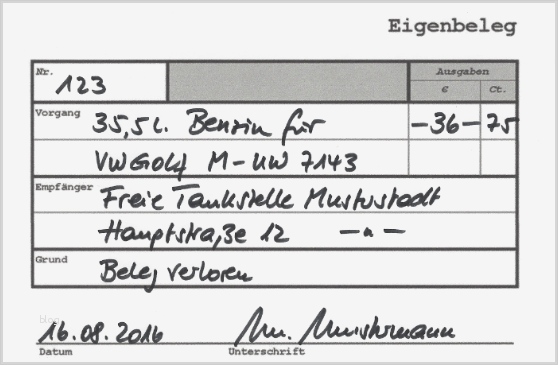 Eigenbeleg
Nr. 123
Ausgaben
€ Ct.
Vorgang 35,5 l. Benzin für -36- 75
VW Golf M-UW 7143
Empfänger Freie Tankstelle Musterstadt
Hauptstraße 12 -"-
Grund
Beleg verloren
16.08.2016
Datum Unterschrift